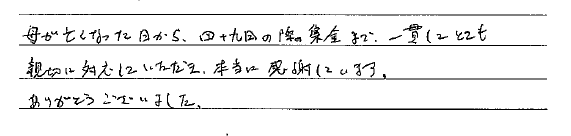 母が亡くなった日から、四十九日の際の集金まで、一貫してとても
親切に対応していただき、本当に感謝しています。
ありがとうございました。